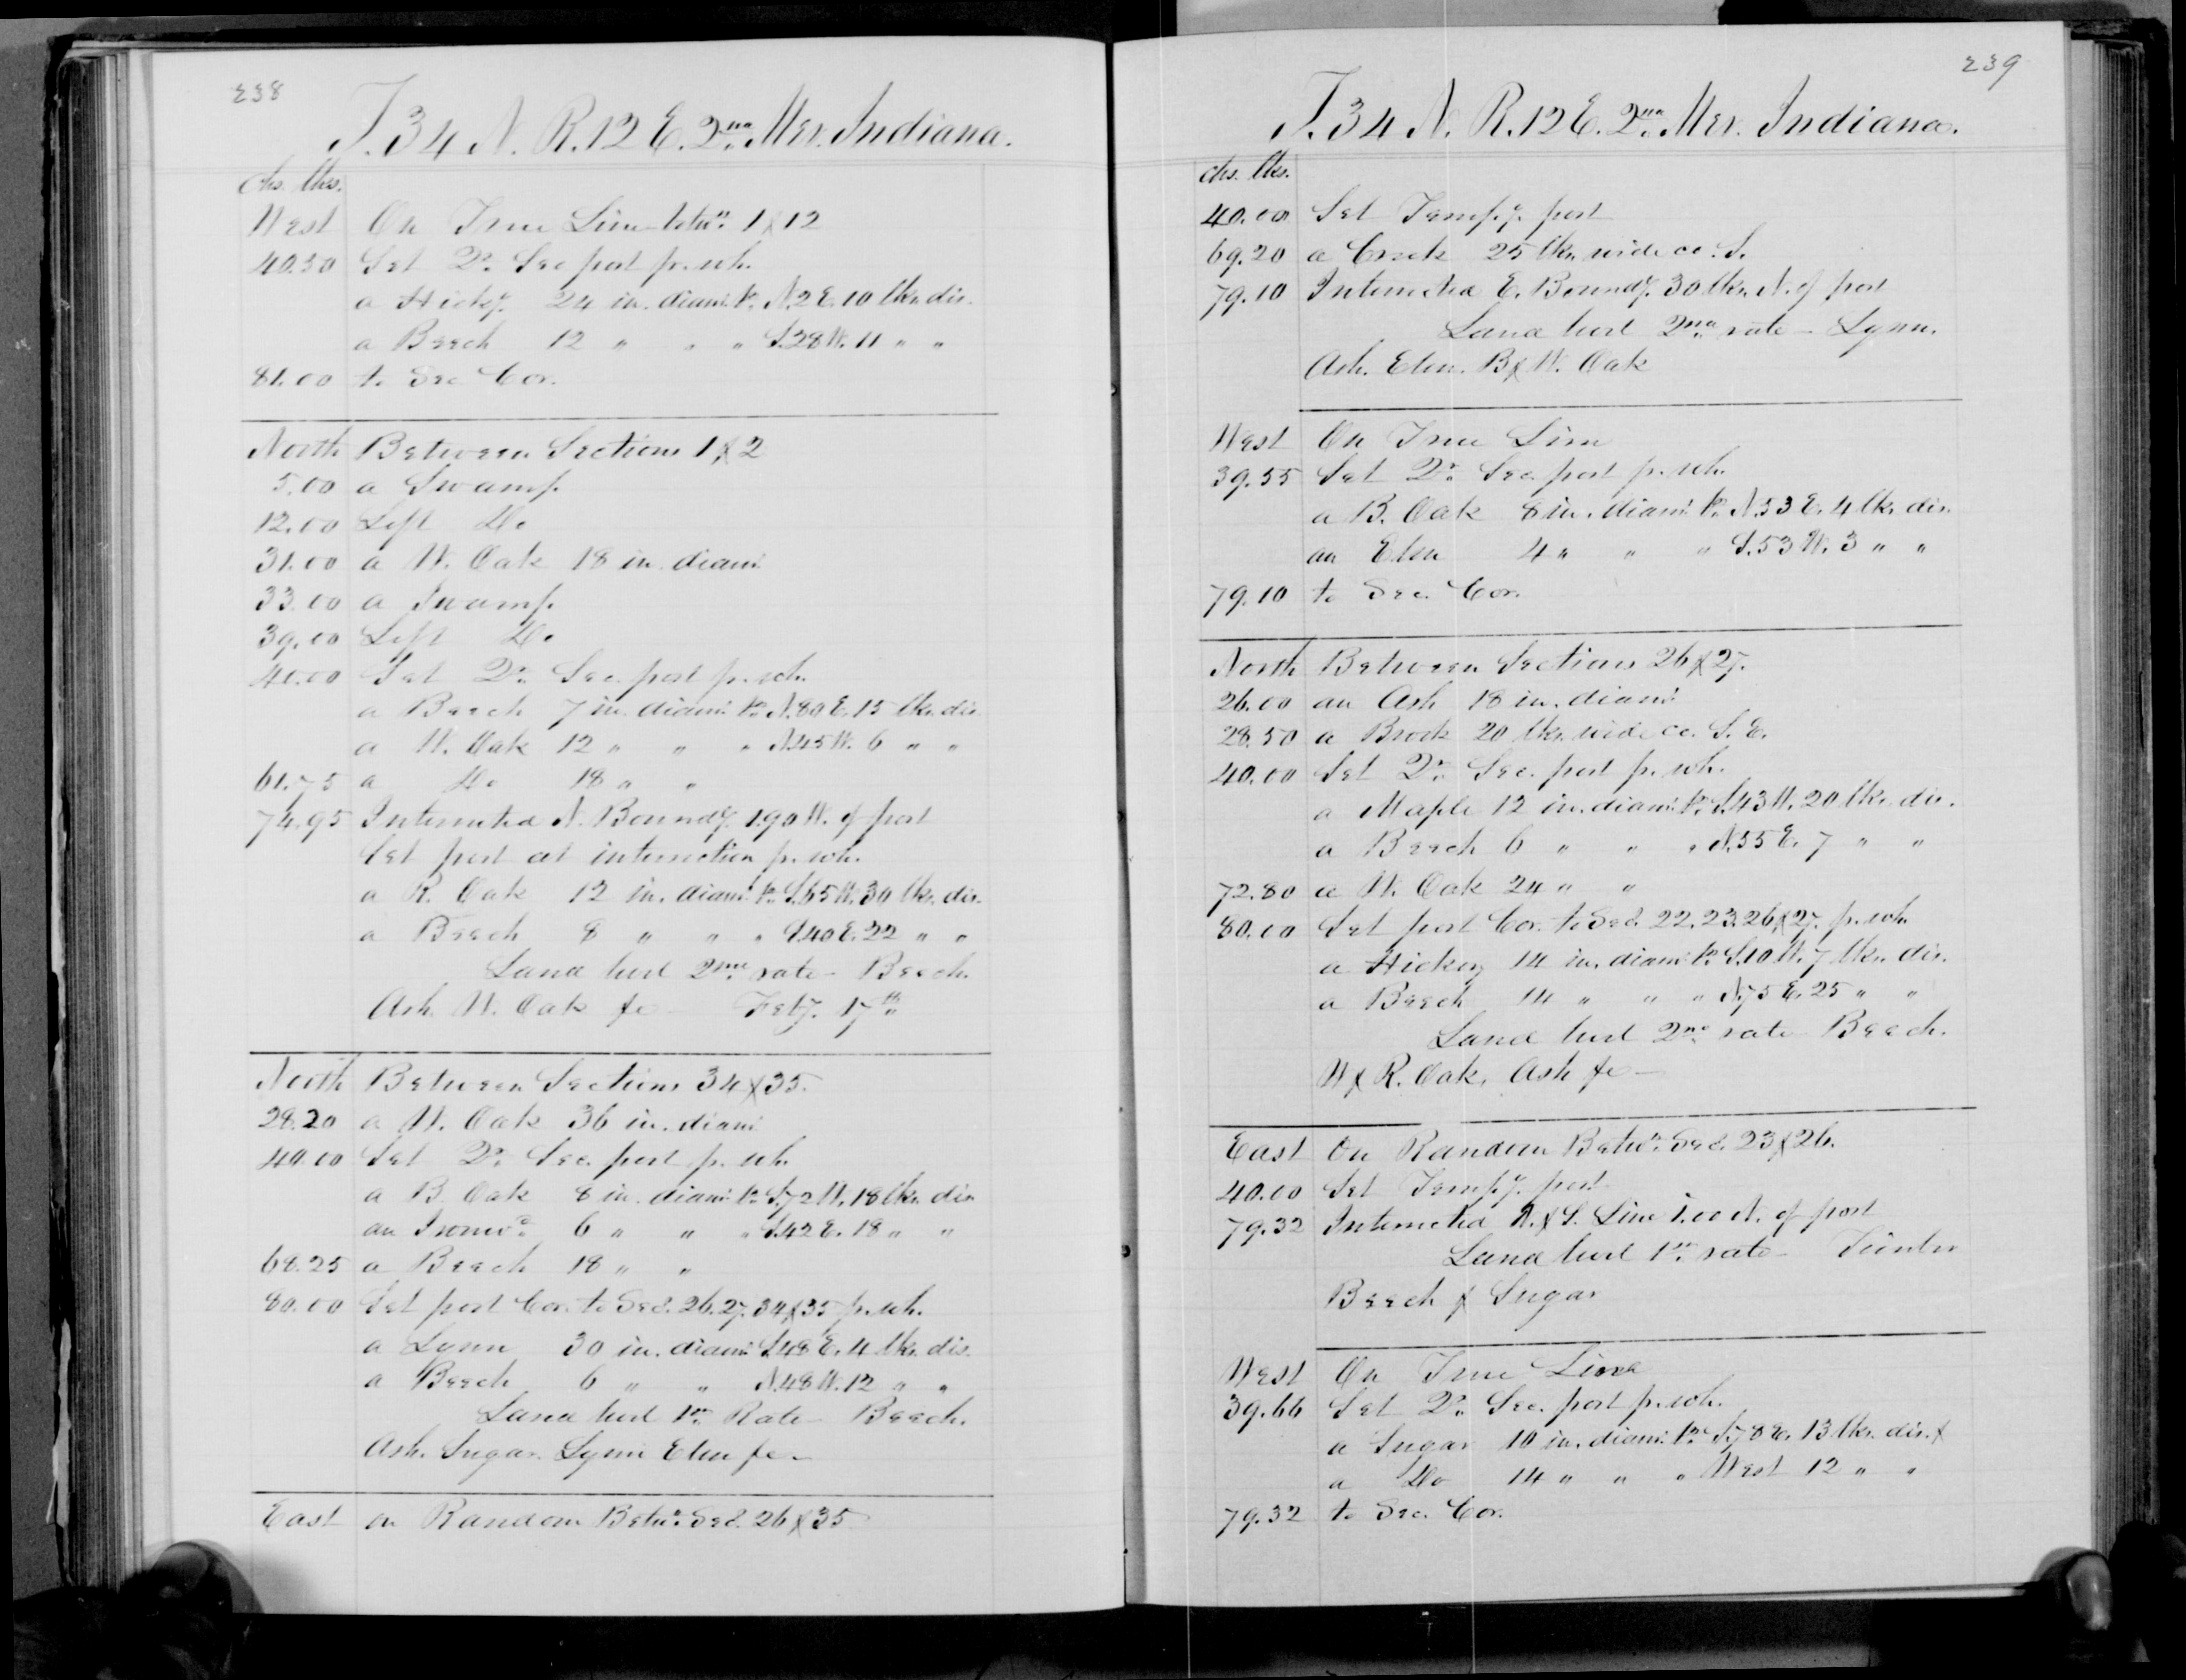 238
T. 34 N. R. 12 E. 2nd Mer. Indiana.
chs. lks.
West On True Line betwn 1 & 12
40.50 Set Qr. Sec post pr. wh.
a Hicky. 24 in. diamr. br. N. 2 E. 10 lks. dis.
a Beech 12 " " " S. 28 W. 11 " "
81.00 to Sec Cor.
North Between Sections 1 & 2
5.00 a Swamp.
12.00 Left Do
31.00 a W. Oak 18 in. diamr.
33.00 a Swamp.
39.00 Left Do
40.00 Set Qr. Sec. post pr. wh.
a Beech 7 in. diamr. br. N. 80 E. 15 lks. dis
a W. Oak 12 " " " N. 45 W. 6 " "
61.75 a Do 18 " "
74.95 Intersected N. Boundy. 1.90 W. of post
Set post at intersection pr. wh.
a R. Oak 12 in. diamr. br. S. 65 W. 30 lks. dis.
a Beech 8 " " " S. 40 E. 22 " "
Land level 2nd rate - Beech.
Ash. W. Oak &c - Feby. 17th
North Between Sections 34 & 35.
28.20 a W. Oak 36 in. diamr
40.00 Set Qr. Sec. post pr. wh.
a B. Oak 8 in. diamr. br. S. 72 W. 18 lks. dis
an Ironwd. 6 " " " S. 42 E. 18 " "
68.25 a Beech 18 " "
80.00 Set post Cor. to Secs. 26. 27. 34 & 35 pr. wh.
a Lynn 30 in. diamr. S. 48 E. 4 lks. dis.
a Beech 6 " " N. 48 W. 12 " "
Land level 1st Rate - Beech.
Ash. Sugar. Lynn Elm &c -
East on Random Betwn. Secs. 26 & 35
239
T. 34 N. R. 12 E. 2nd Mer. Indiana.
chs. lks.
40.00 Set Tempy. post
69.20 a Creek 25 lks. wide co. S.
79.10 Intersected E. Boundy. 30 lks. N. of post
Land level 2nd rate - Lynn.
Ash. Elm. B & W. Oak
West On True Line
39.55 Set Qr. Sec. post pr. wh.
a B. Oak 8 in. diamr. br. N. 53 E. 4 lks. dis.
an Elm 4 " " " S. 53 W. 3 " "
79.10 to Sec. Cor.
North Between Sections 26 & 27.
26.00 an Ash 18 in. diamr
28.50 a Brook 20 lks. wide co. S. E.
40.00 Set Qr. Sec. post pr. wh.
a Maple 12 in. diamr. br. S. 43 W. 20 lks. dis.
a Beech 6 " " " N. 55 E. 7 " "
72.80 a W. Oak 24 " "
80.00 Set post Cor. to Secs. 22. 23. 26 & 27. pr. wh.
a Hickory 14 in. diamr. br. S. 10 W. 7 lks. dis.
a Beech 14 " " " N. 75 E. 25 " "
Land level 2nd rate Beech.
W & R. Oak, Ash &c -
East On Random Betwn. Secs. 23 & 26.
40.00 Set Tempy. post
79.32 Intersected N. & S. Line 1.00 N. of post
Land level 1st rate - Timber
Beech & Sugar
West On True Line
39.66 Set Qr. Sec. post pr. wh.
a Sugar 10 in. diamr. br. S. 78 E. 13 lks. dis. &
a Do 14 " " " West 12 " "
79.32 to Sec. Cor.